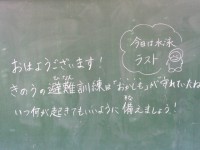 おはようございます！
きのうの避難訓練は"おかしも"が守れていたね
いつ何が起きてもいいように備えましょう！
今日は水泳
ラスト